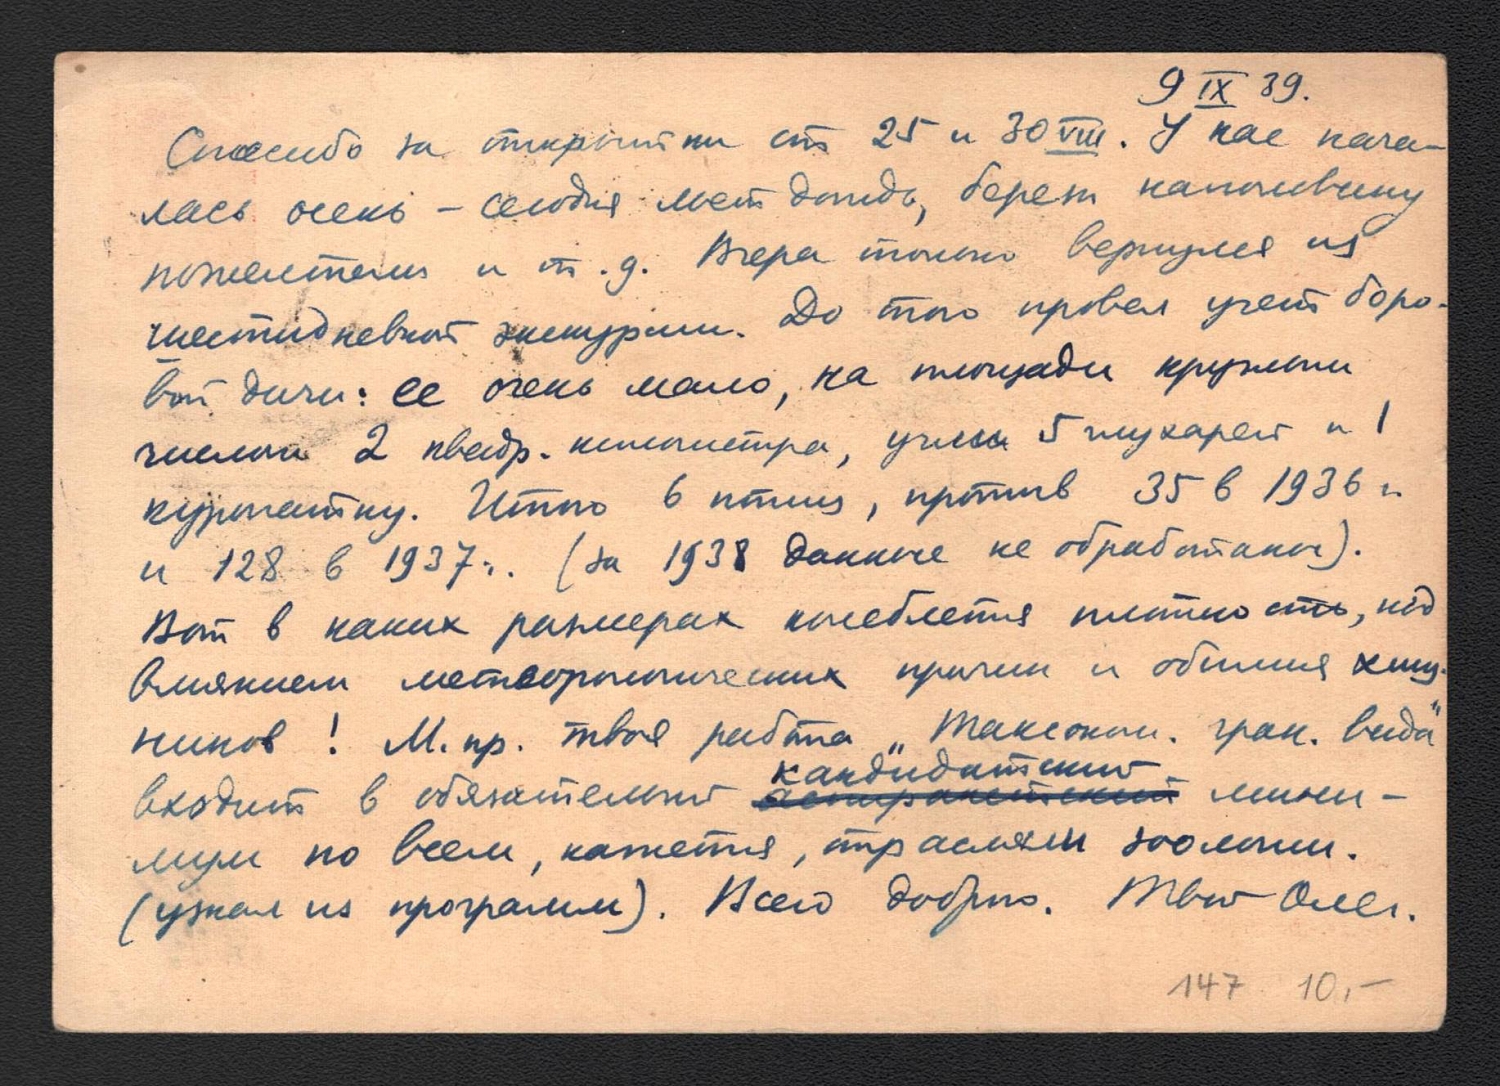 9 IX 39.
Спасибо за открытки от 25 и 30 VIII. У нас нача-
лась осень – сегодня льет дождь, берез наполовину
пожелтели и т.д. Вчера только вернулся из
шестидневной экскурсии. До того провел учет боро-
вой дичи: ее очень мало, на площади круглым
числом 2 квадр. километра, учли 5 глухарей и 1
куропатку. Итого 6 птиц, против 35 в 1936 г.
и 128 в 1937 г. (за 1938 данные не обработаны).
Вот в каких размерах колеблется плотность, под
влиянием метеорологических причин и обилия хищ-
ников! М. пр. твоя работа „Таксоном. гран. вида“
входит в обязательный
кандидатский
аспирантский мини-
мум по всем, кажется, отраслям зоологии.
(узнал из программ). Всего доброго. Твой Олег.
147 10,-